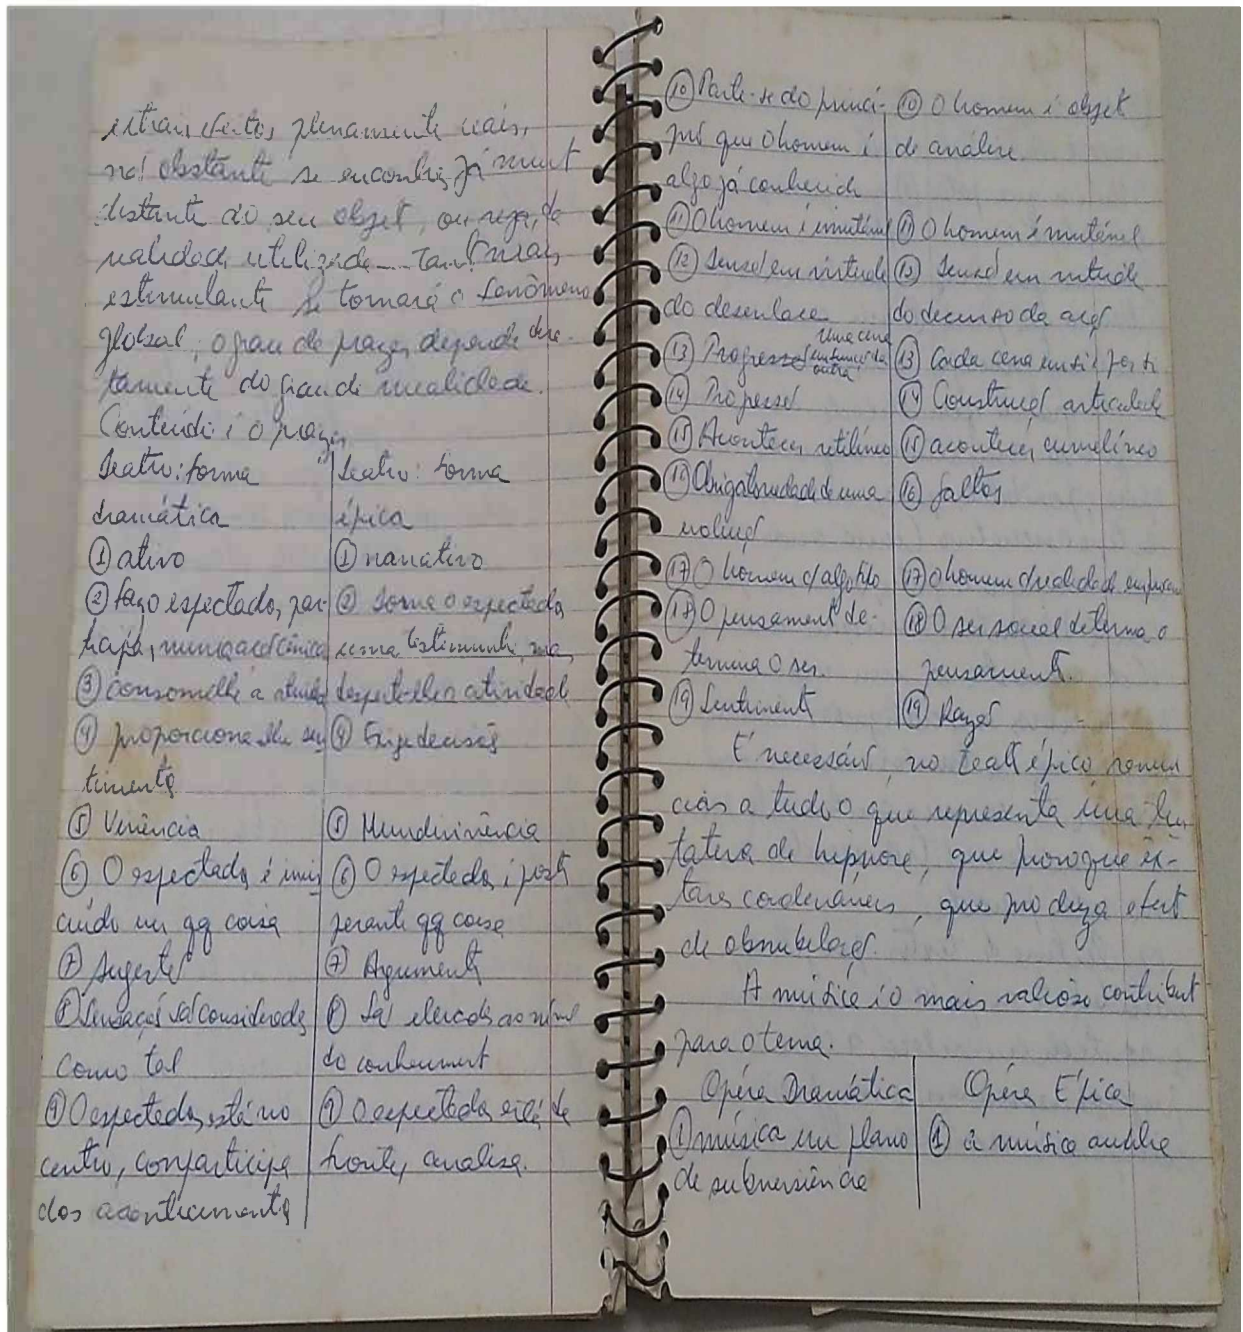 extrai efeitos plenamente reais,
não obstante se encontrar já muit
distante do seu objet, ou seja, da
realidade utilizada. Tant mais
estimulante se tornará o fenômeno
global; o grau de prazer depende dire-
tamente do grau de irrealidade.
Conteúdo é o prazer
Teatro: forma
dramática
① ativo
② faz o espectador, par
ticipar, numa ação cênica
③ consome-lhe a atividade
④ proporciona-lhe sen
timentos
⑤ Vivência
⑥ O espectador é imis
cuído em qq coisa
⑦ Sugestão
⑧ Sensações são consideradas
como tal
⑨ O espectador está no
centro, comparticipa
dos acontecimentos
Teatro: forma
épica
① narrativo
② torna o espectador
uma testemunha, mas
desperta-lhe a atividade
④ Exige decisões
⑤ Mundivivência
⑥ O espectador é post
perante qq coisa
⑦ Argument
⑧ São elevadas ao nível
do conheciment
⑨ O espectador está de
fronte, analisa.
⑩ Parte-se do princí-
pio que o homem é
algo já conhecid
⑪ O homem é imutável
⑫ Tensão em virtude
do desenlace
⑬ Uma cena em função da outra
⑭ Progressão
⑮ Acontecer retilíneo
Obrigatoriedade de uma
evolução
⑰ O homem c/ algo fixo
⑱ O pensament de-
termina o ser
⑲ Sentiment
⑩ O homem é objet
de análise.
⑪ O homem é mutável
Tensão em virtude
do decurso da ação
⑬ Cada cena em si e por si
⑭ Construção articulada
⑮ acontecer, curvilíneo
⑯ saltos
⑰ O homem c/ realidade em processo
⑱ O ser social determina o
pensament.
⑲ Razão
É necessário, no teatr épico renun
ciar a tudo o que representa uma ten
tativa de hipnose, que provoque êx-
tases condenáveis, que produza efeit
de obnubilação.
A música é o mais valioso contribut
para o tema.
Opera Dramática
① música em plano
de subserviência
Opera Épica
① a música analisa